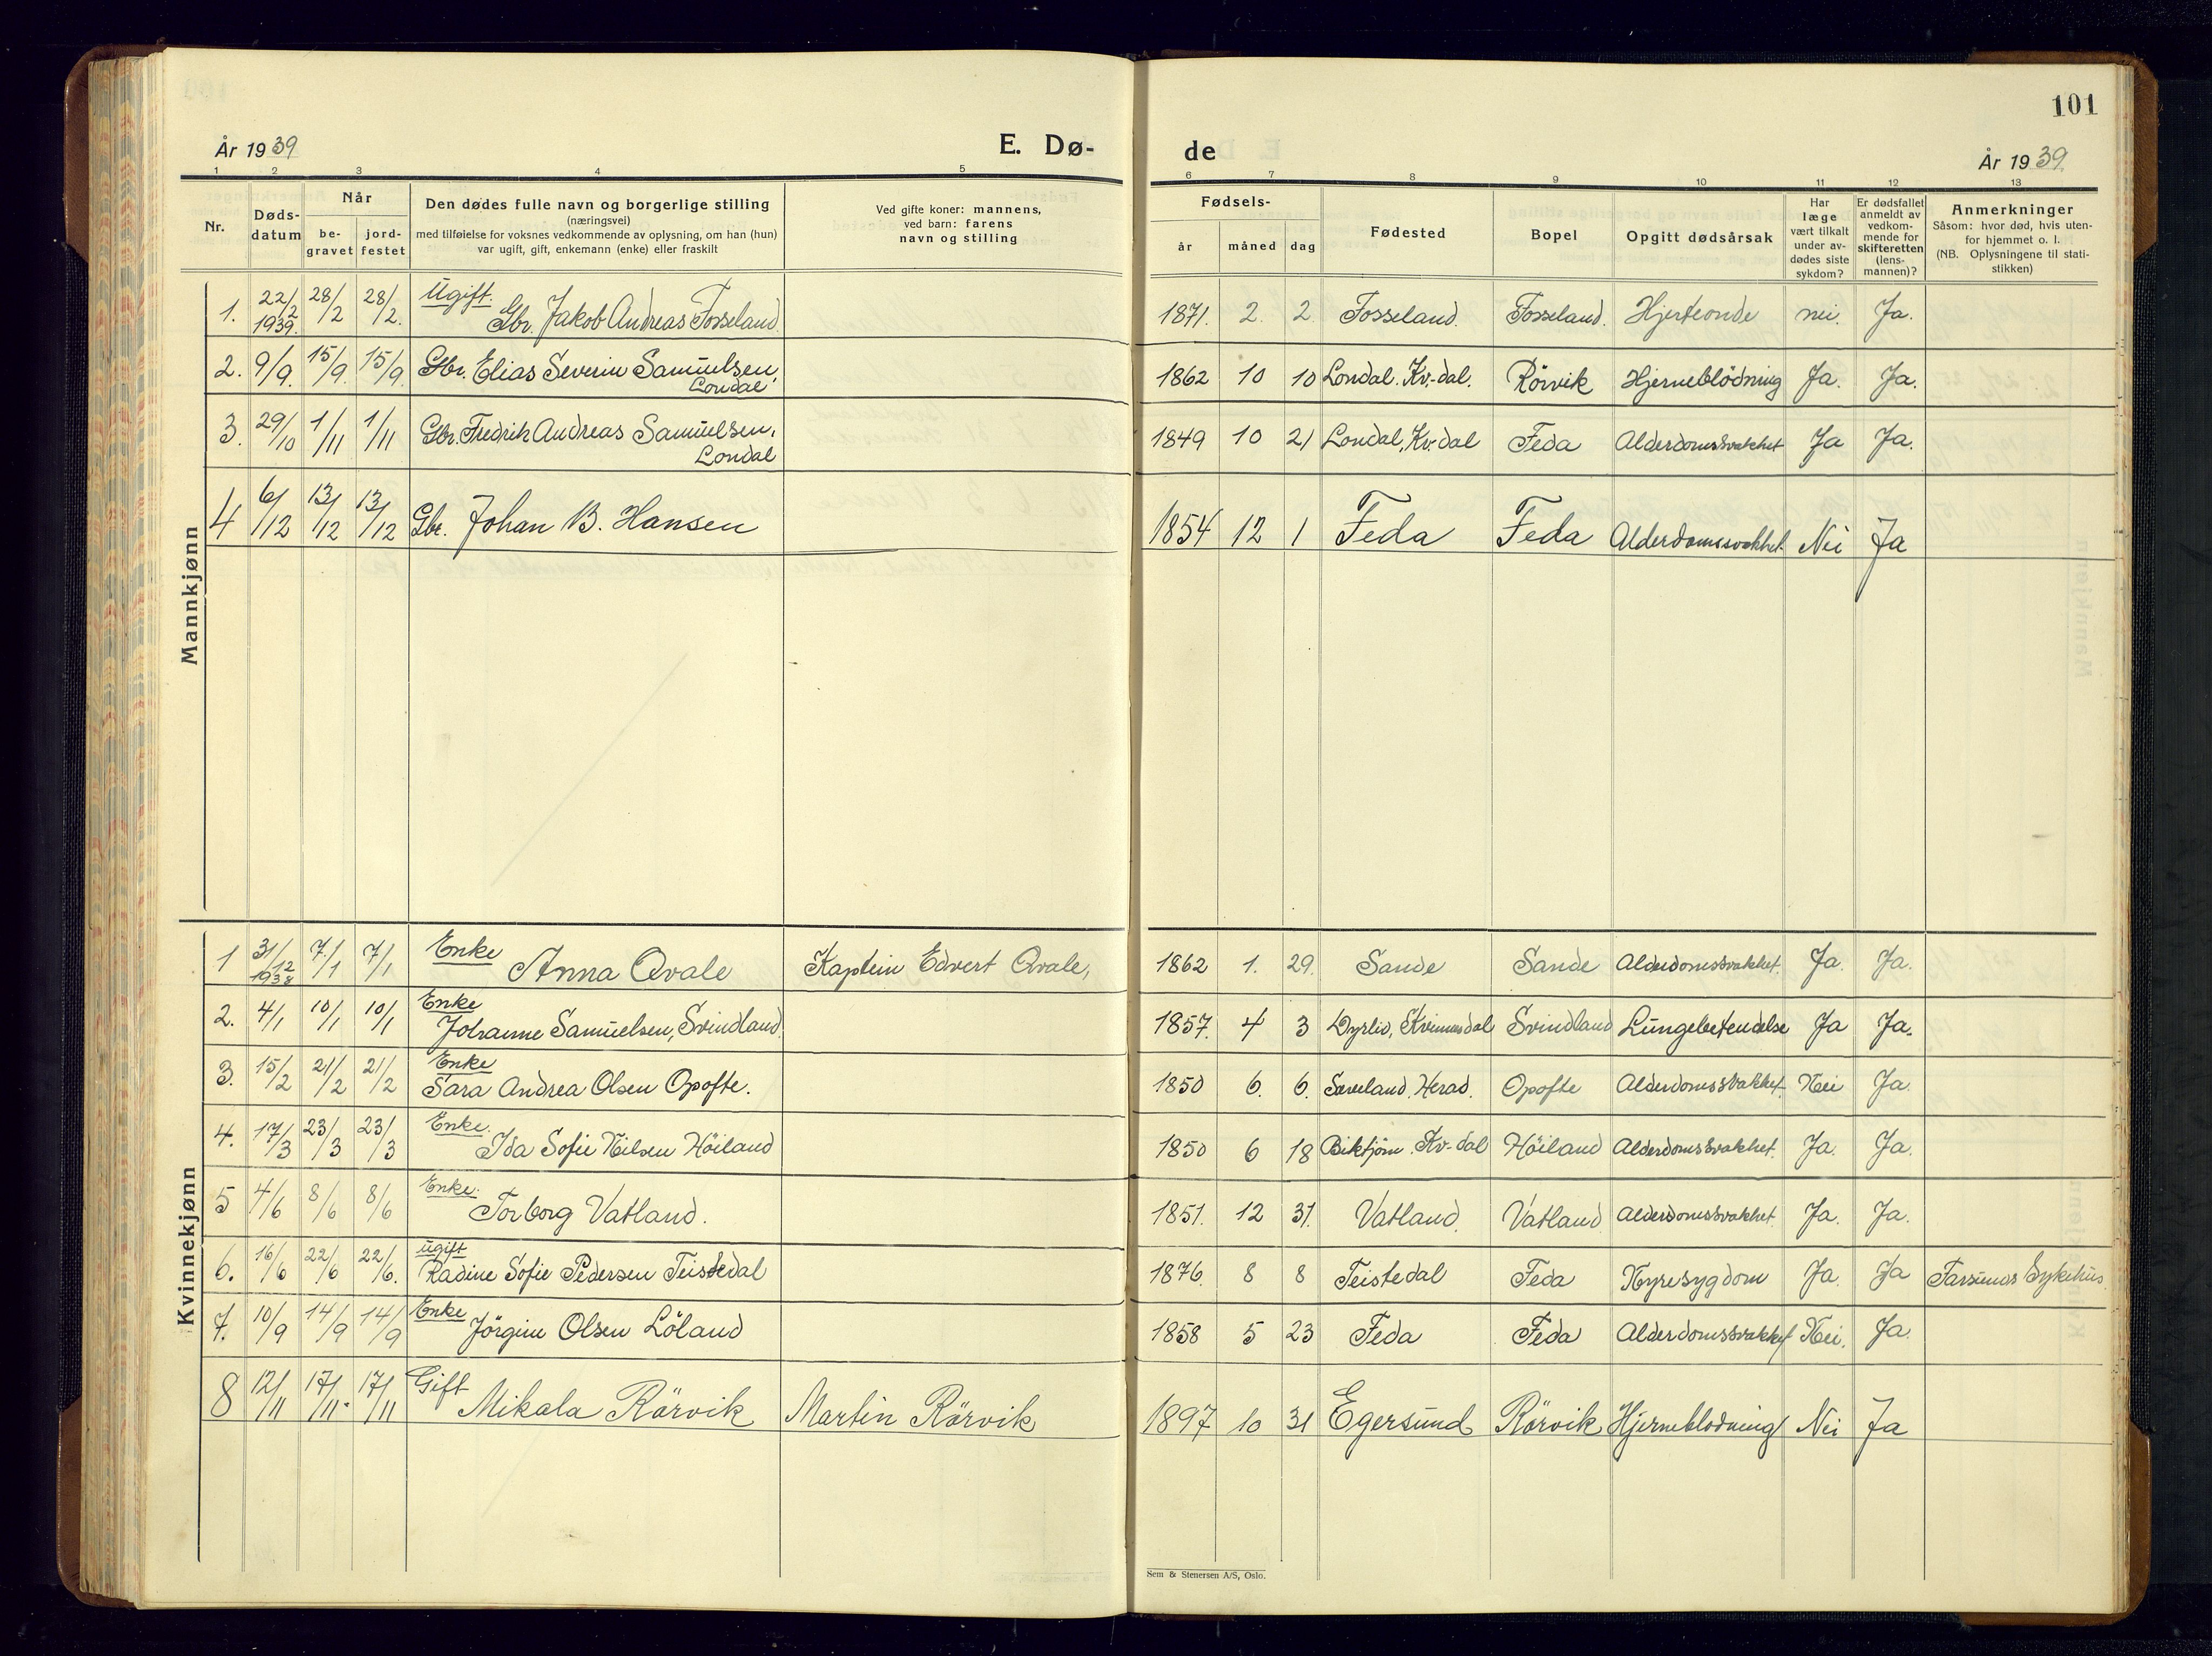 101
År 1939
E. Dø-
de
År 1939
1 2 3 4 5 6 7 8 9 10 11 12 13
Nr.
Døds-
datum
Når
be-
gravet
jord-
festet
Den dødes fulle navn og borgerlige stilling
(næringsvei)
med tilføielse for voksnes vedkommende av oplysning, om han (hun)
var ugift, gift, enkemann (enke) eller fraskilt
Ved gifte koner: mannens,
ved barn: farens
navn og stilling
Fødsels-
år måned dag
Fødested
Bopel
Opgitt dødsårsak
Har
læge
vært tilkalt
under av-
dødes siste
sykdom?
Er dødsfallet
anmeldt av
vedkom-
mende for
skifteretten
(lens-
mannen)?
Anmerkninger
Såsom: hvor død, hvis uten-
for hjemmet o. l.
(NB. Oplysningene til stati-
stikken)
Mannkjønn
1. 22/2 1939. 28/2 28/2. Ugift. Gbr. Jakob Andreas Fosseland. 1871. 2. 2 Fosseland. Fosseland. Hjerteonde nei. Ja.
2. 9/9. 15/9. 15/9. Gbr. Elias Severin Samuelsen, Londal 1862 10 10 Londal. Kv.-dal. Rörvik Hjerneblödning Ja. Ja.
3. 29/10 1/11 1/11 Gbr. Fredrik Andreas Samuelsen, Londal 1849 10 21 Londal, Kv.dal Feda Alderdomssvakhet Ja Ja.
4 6/12 13/12 13/12 Gbr. Johan B. Hansen 1854 12 1 Feda Feda Alderdomssvakhet. Nei Ja
Kvinnekjønn
1 31/12 1938 7/1 7/1 Enke Anna Qvale Kaptein Edvert Qvale, 1862 1. 29. Sande Sande Alderdomssvakhet. Ja. Ja.
2. 4/1 10/1 10/1 Enke Johanne Samuelsen, Svindland. 1857. 4 3 Dyrlid, Kvinnesdal Svindland Lungebetendelse Ja Ja.
3. 15/2 21/2 21/2 Enke Sara Andrea Olsen Opofte. 1850 6. 6. Herad. Opofte Alderdomssvakhet. Nei Ja.
4. 17/3 23/3 23/3 Enke. Ida Sofie Nilsen Höiland 1850 6 18 Biktjörn. Kv-dal Höiland Alderdomssvakhet. Ja. Ja.
5 4/6 8/6 8/6 Enke. Torborg Vatland. 1851. 12 31. Vatland. Vatland Alderdomssvakhet. Ja. Ja.
6. 16/6 22/6 22/6. ugift Radine Sofie Pedersen Teistedal 1876. 8 8 Teistedal Feda Nyresygdom Ja. Ja Farsunds Sykehus.
7. 10/9 14/9 14/9 Enke Jörgine Olsen Löland 1858 5 23 Feda Feda Alderdomssvakhet Nei. Ja.
8 12/11 17/11. 17/11 Gift Mikala Rörvik Martin Rörvik 1897 10 31 Egersund Rörvik Hjerneblodning Nei Ja
Sem & Stenersen A/S, Oslo.